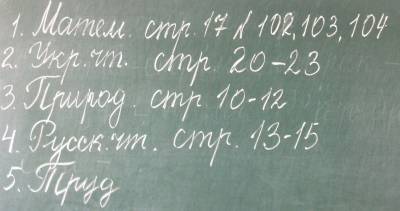 1. Матем. стр. 17 № 102, 103, 104
2. Укр. чт. стр. 20-23
3. Природ. стр. 10-12
4. Русск. чт. стр. 13-15
5. Труд